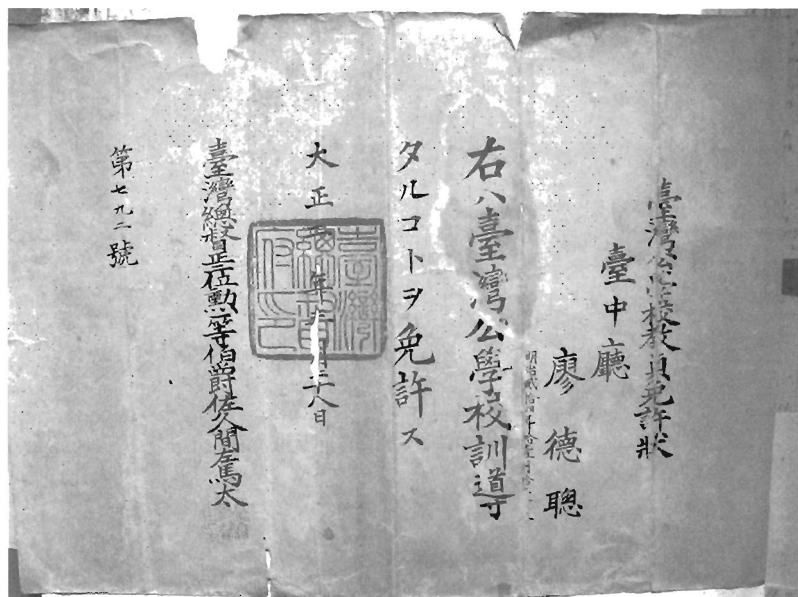 臺灣公學校教員免許狀
臺中廳
廖德聰
明治貳拾四年拾壹月
右ハ臺灣公學校訓導
タルコトヲ免許ス
大正年月二十八日
臺灣總督府印
臺灣總督正三位勳一等伯爵佐久間左馬太
第七九二號